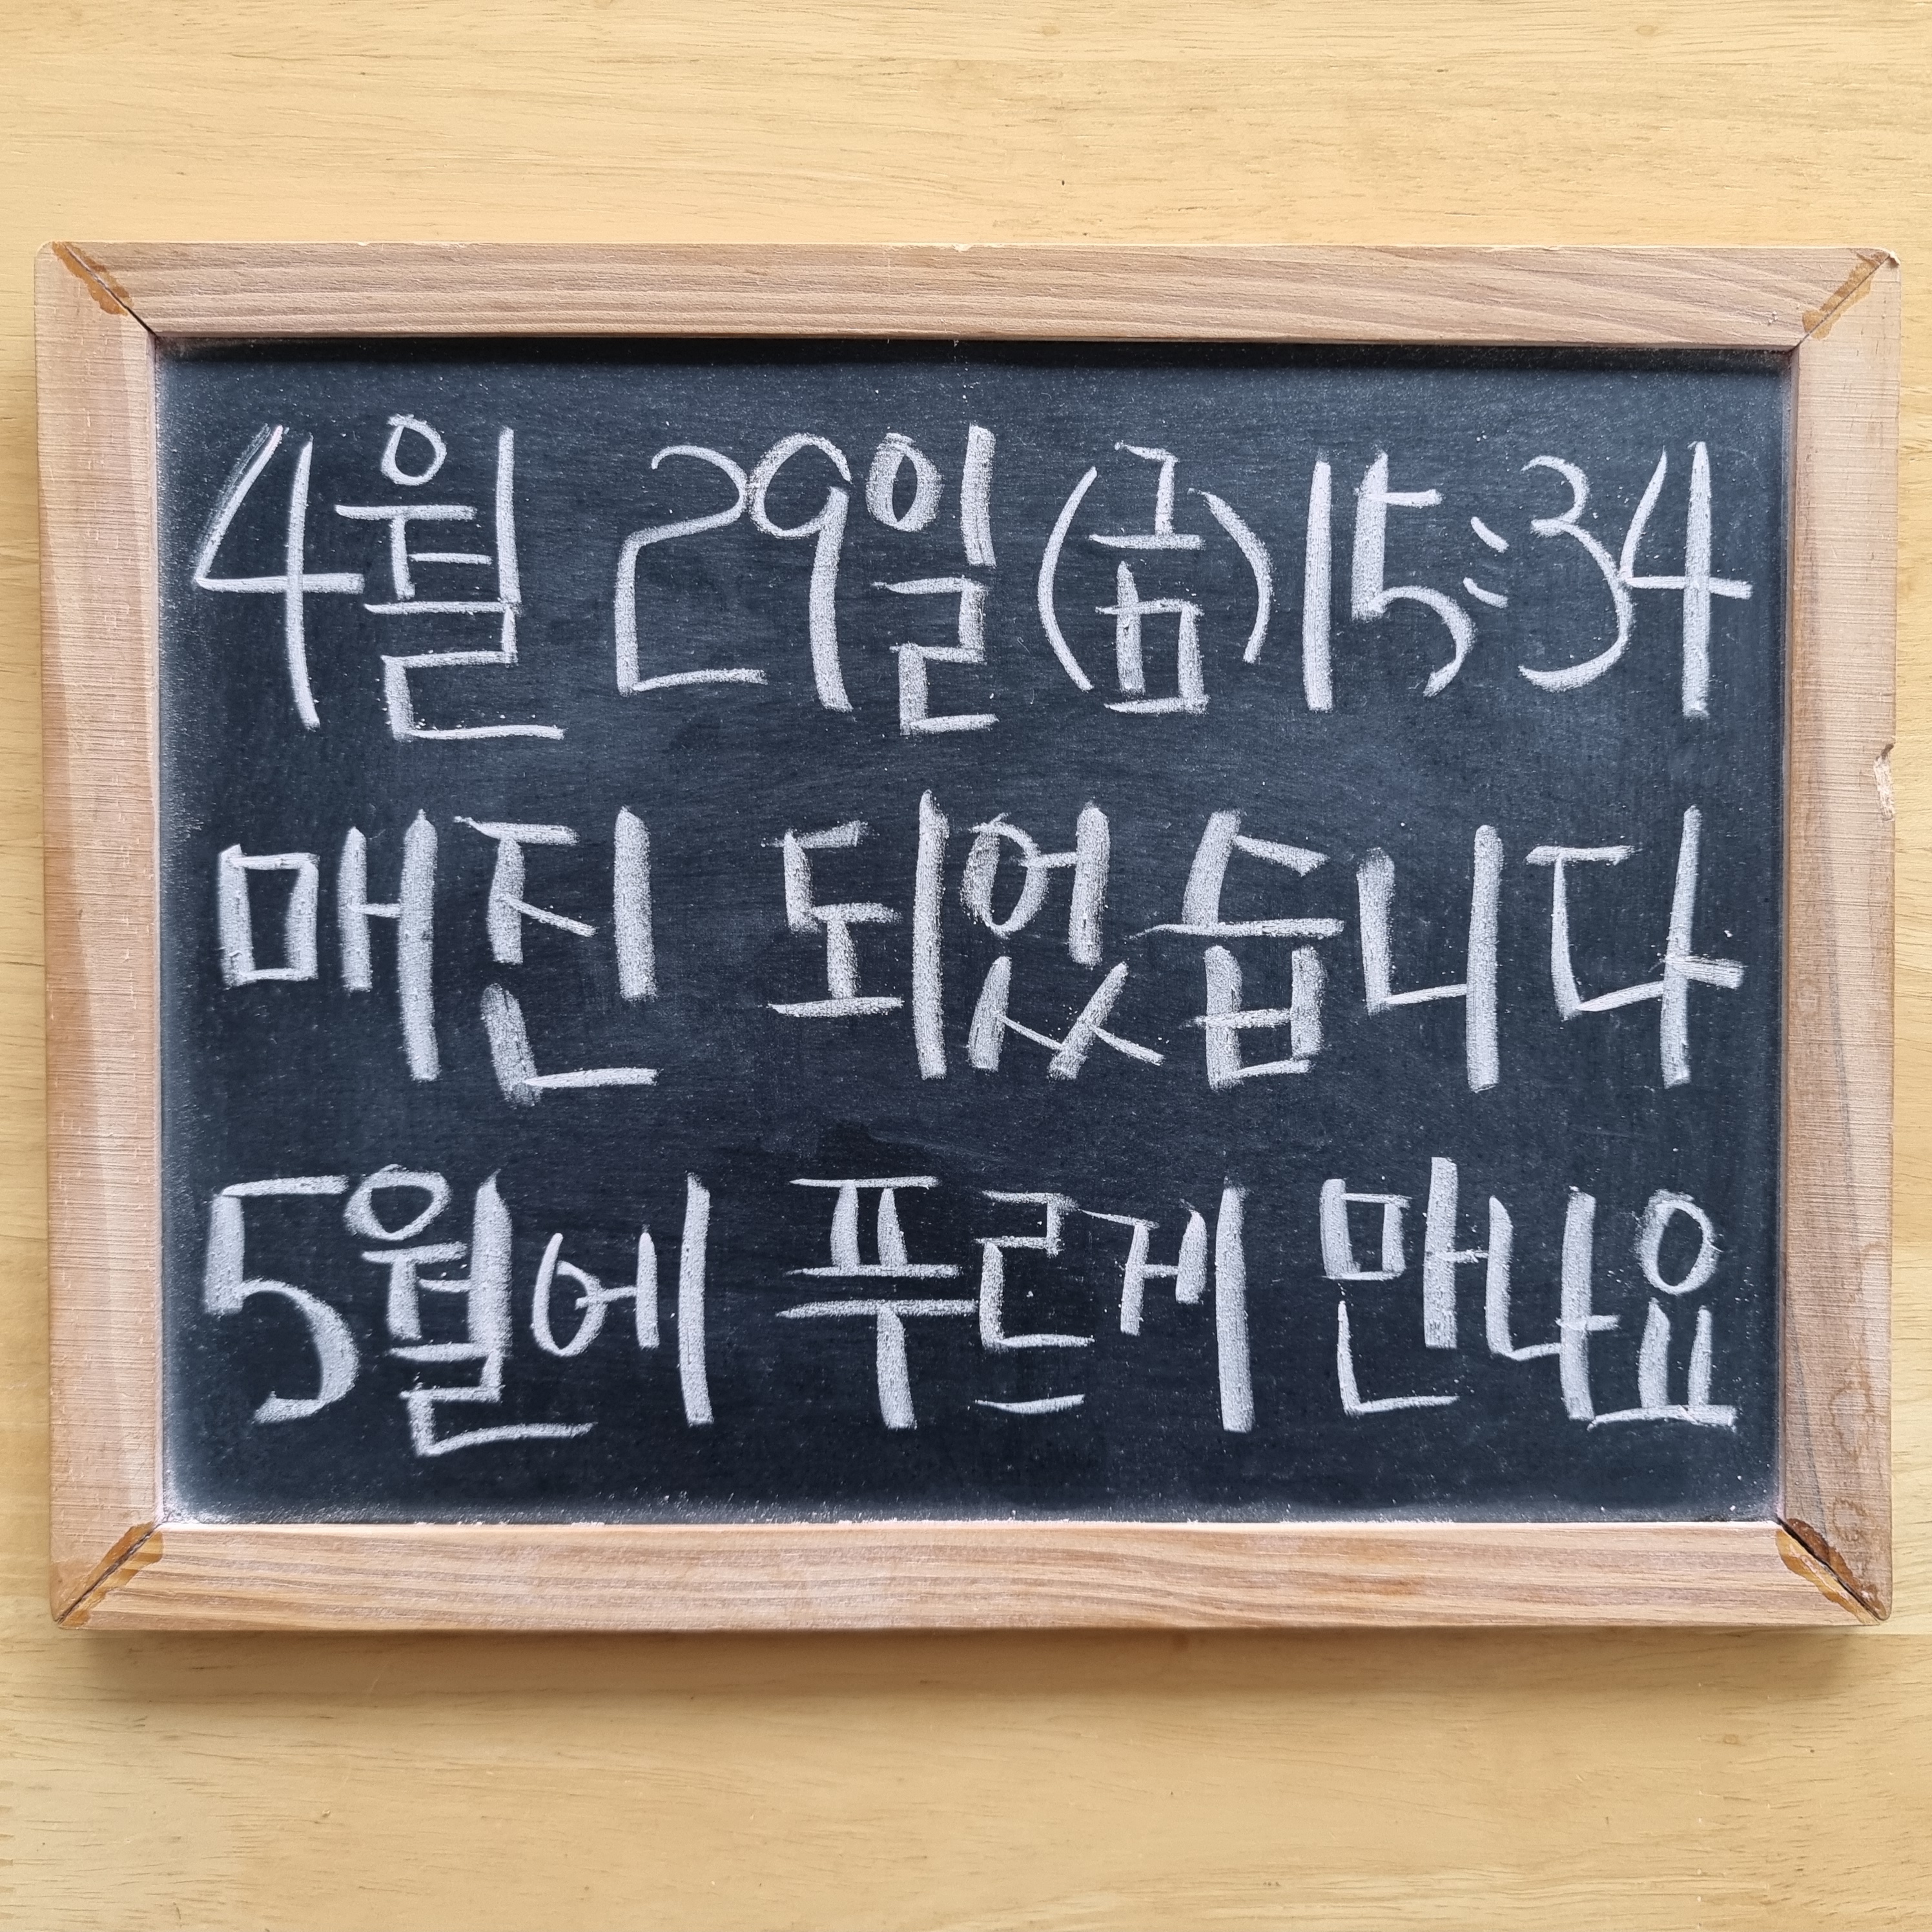 4월 29일(금)15:34
매진 되었습니다
5월에 푸르게 만나요